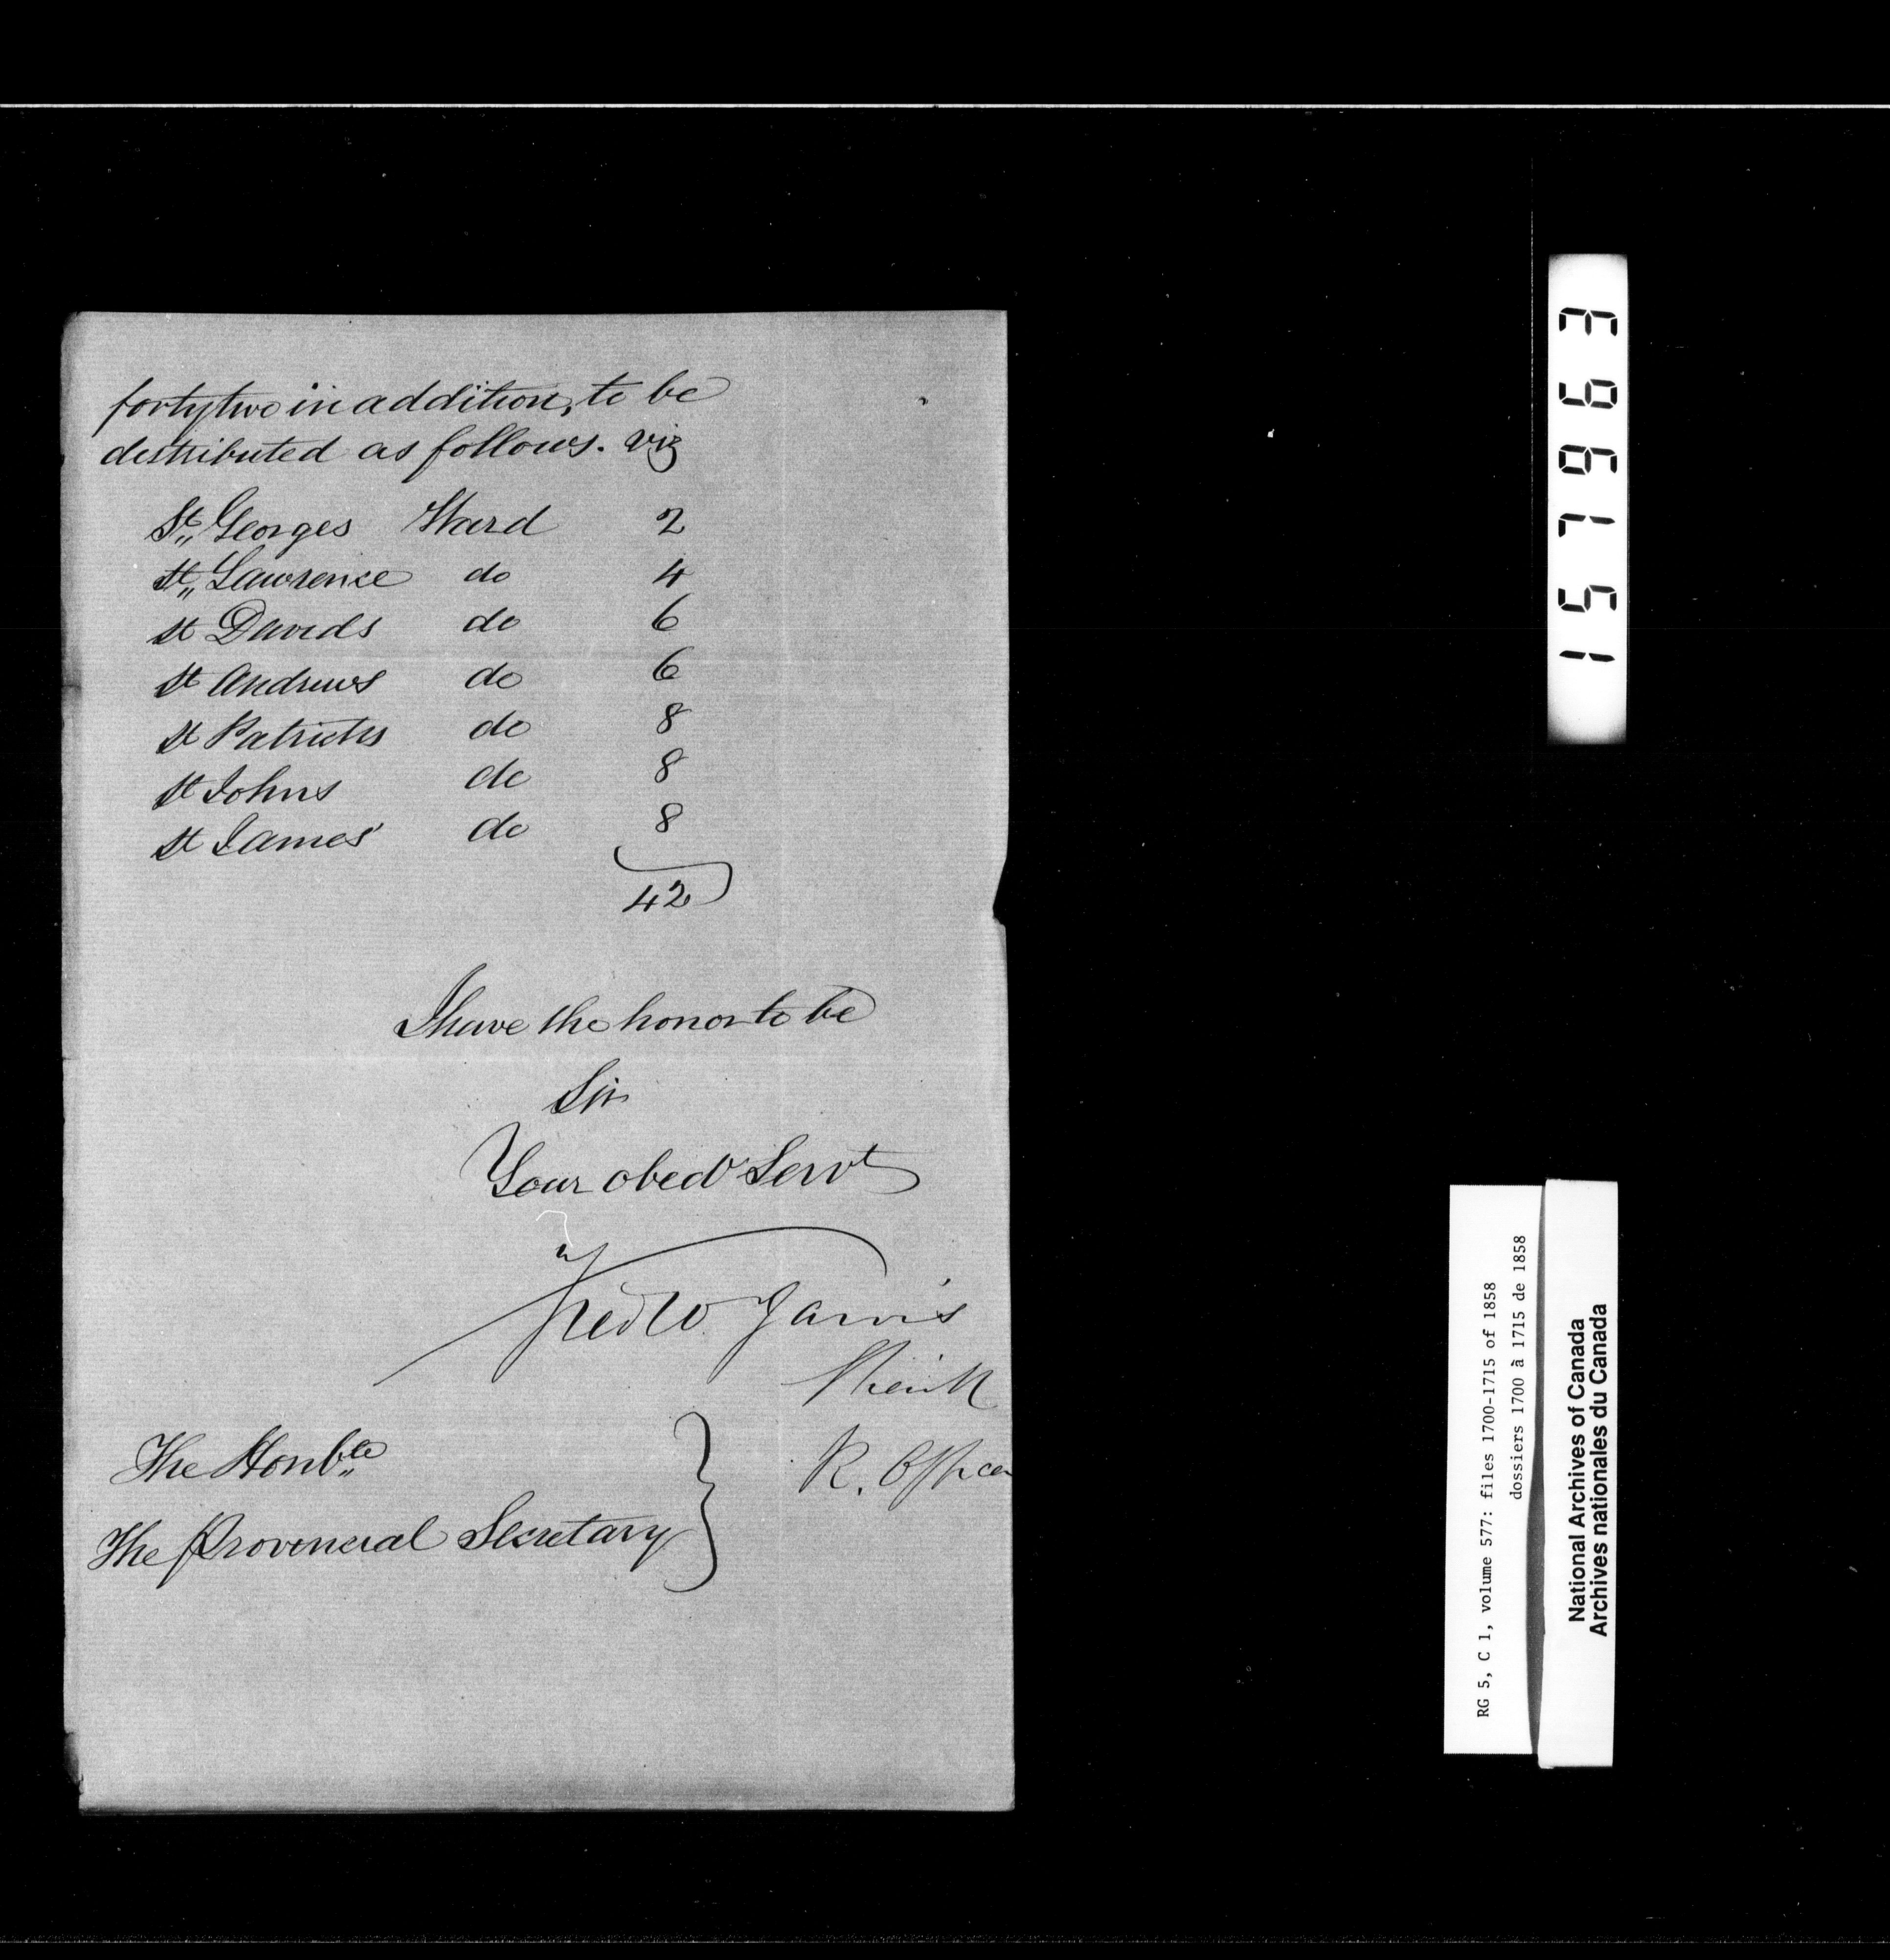 fortytwo in addition, to be
distributed as follows. viz
St. Georges Ward 2
St. Lawrence do 4
St Davids do 6
St Andrews do 6
St Patricks do 8
St Johns do 8
St James' do 8
42
I have the honor to be
Sir
Your obedt Servt
Fred W. Jarvis
Sheriff
R. Officer
The Honble
The Provincial Secretary
157963
RG 5, C 1, volume 577: files 1700-1715 of 1858
dossiers 1700 à 1715 de 1858
National Archives of Canada
Archives nationales du Canada